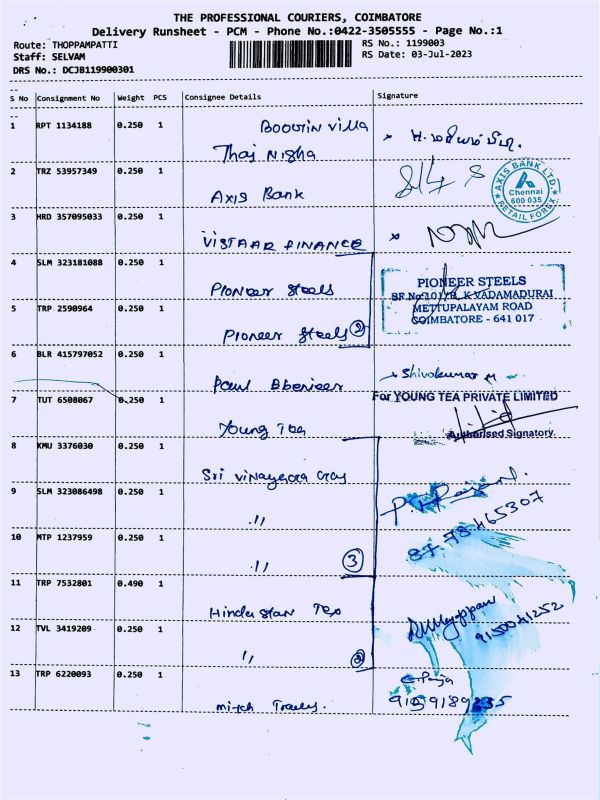 THE PROFESSIONAL COURIERS, COIMBATORE
Delivery Runsheet - PCM - Phone No.:0422-3505555 - Page No.:1
Route: THOPPAMPATTI
RS No.: 1199003
Staff: SELVAM
RS Date: 03-Jul-2023
DRS No.: DCJB119900301
S No Consignment No Weight PCS Consignee Details Signature
1 RPT 1134188 0.250 1
Thaj Nisha
2 TRZ 53957349 0.250 1
Axis Bank
AXIS BANK LTD.
Chennai
600 035
RETAIL FOREX
3 HRD 357095033 0.250 1
VISTAAR FINANCE
4 SLM 323181088 0.250 1
Pioneer Steels
PIONEER STEELS
K VADAMADURAI
METTUPALAYAM ROAD
COIMBATORE - 641 017
5 TRP 2590964 0.250 1
Pioneer Steels 2
6 BLR 415797052 0.250 1
Shivakumar M
7 TUT 6508067 0.250 1
Young Tea
For YOUNG TEA PRIVATE LIMITED
Authorised Signatory.
8 KMU 3376030 0.250 1
Sri
9 SLM 323086498 0.250 1
"
8778465307
10 MTP 1237959 0.250 1
" 3
11 TRP 7532801 0.490 1
Hindustan Tex
12 TVL 3419209 0.250 1
"
9150041252
13 TRP 6220093 0.250 1